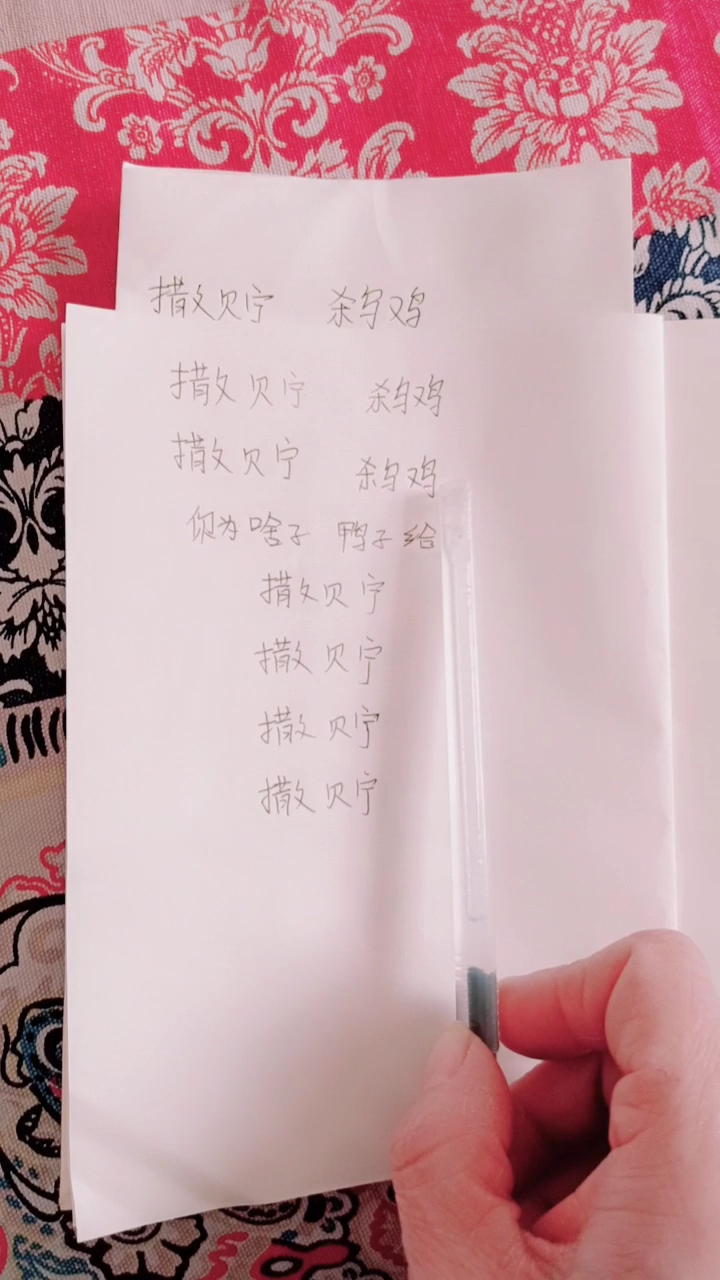 撒贝宁 杀乌鸡
撒贝宁 杀乌鸡
撒贝宁 杀乌鸡
你为啥子 鸭子给
撒贝宁
撒贝宁
撒贝宁
撒贝宁